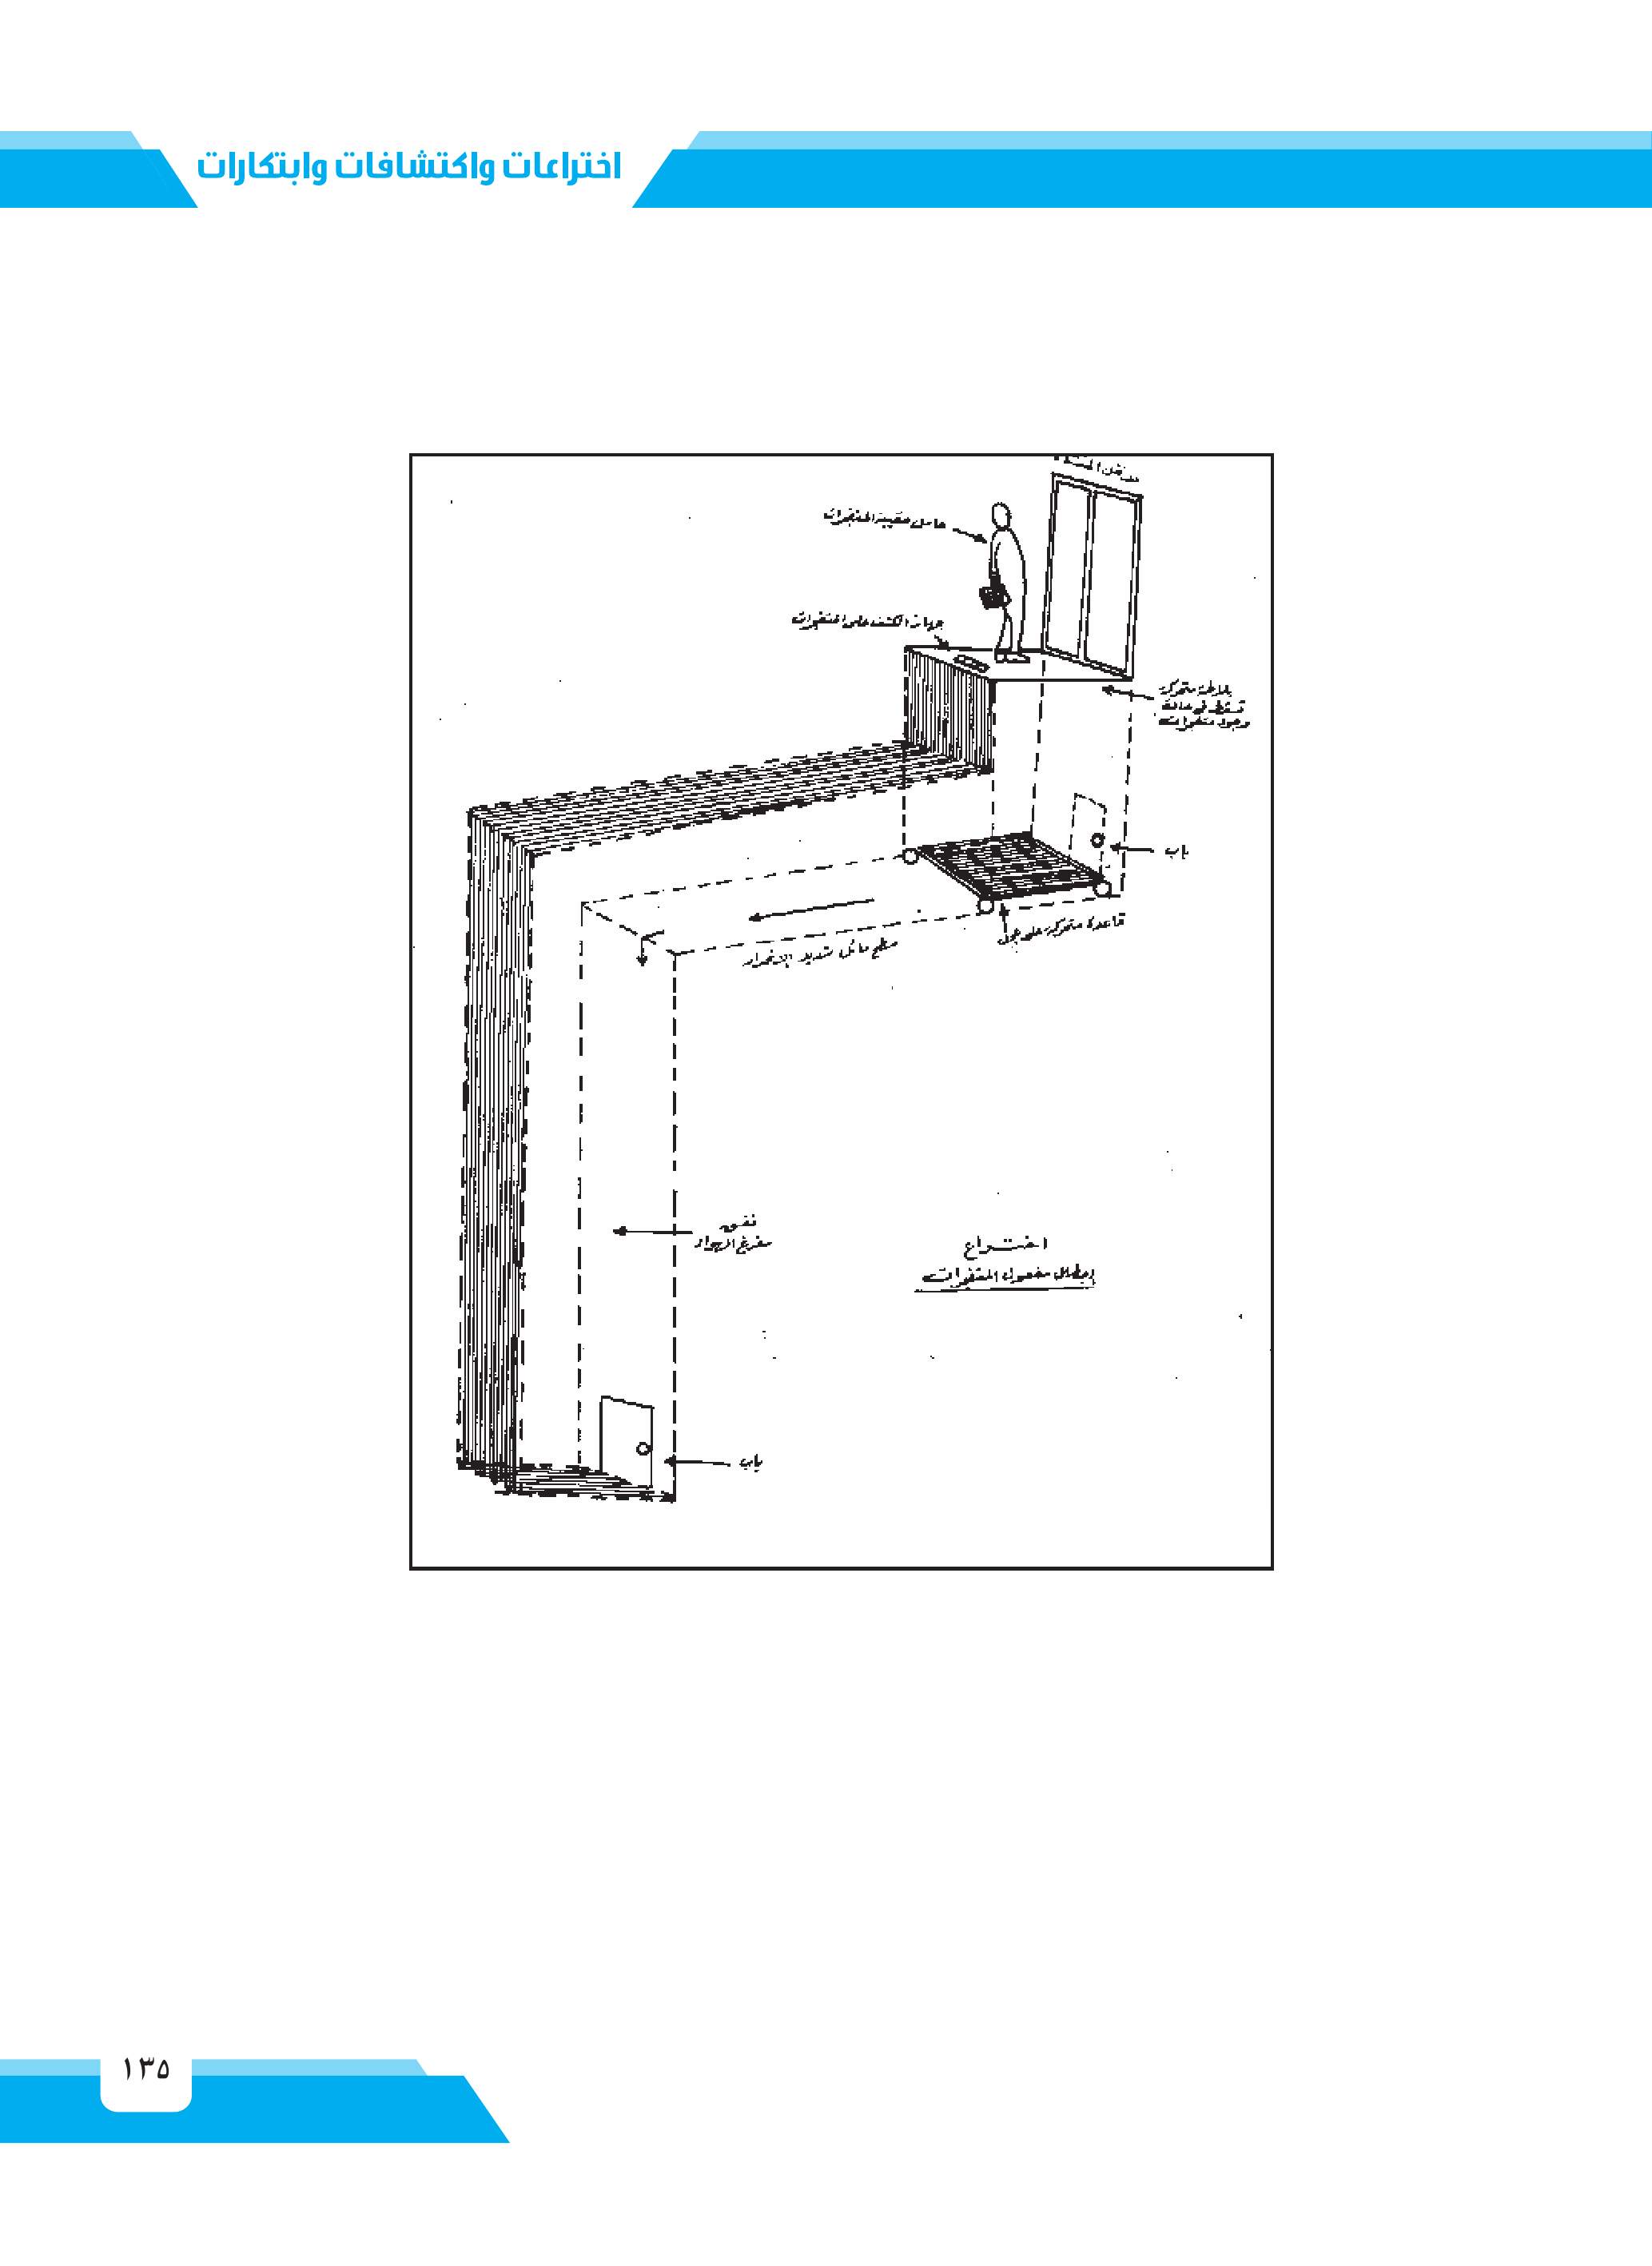 اختراعات واكتشافات وابتكارات
حامل حقيبة المتفجرات
جهاز الكشف على المتفجرات
بلاطة متحركة
تسقط فى حالة
وجود متفجرات
باب
قاعدة متحركة على عجل
سطح مائل شديد الإنحدار
نفق
مفرغ الهواء
اختراع
إبطال مفعول المتفجرات
باب
١٣٥